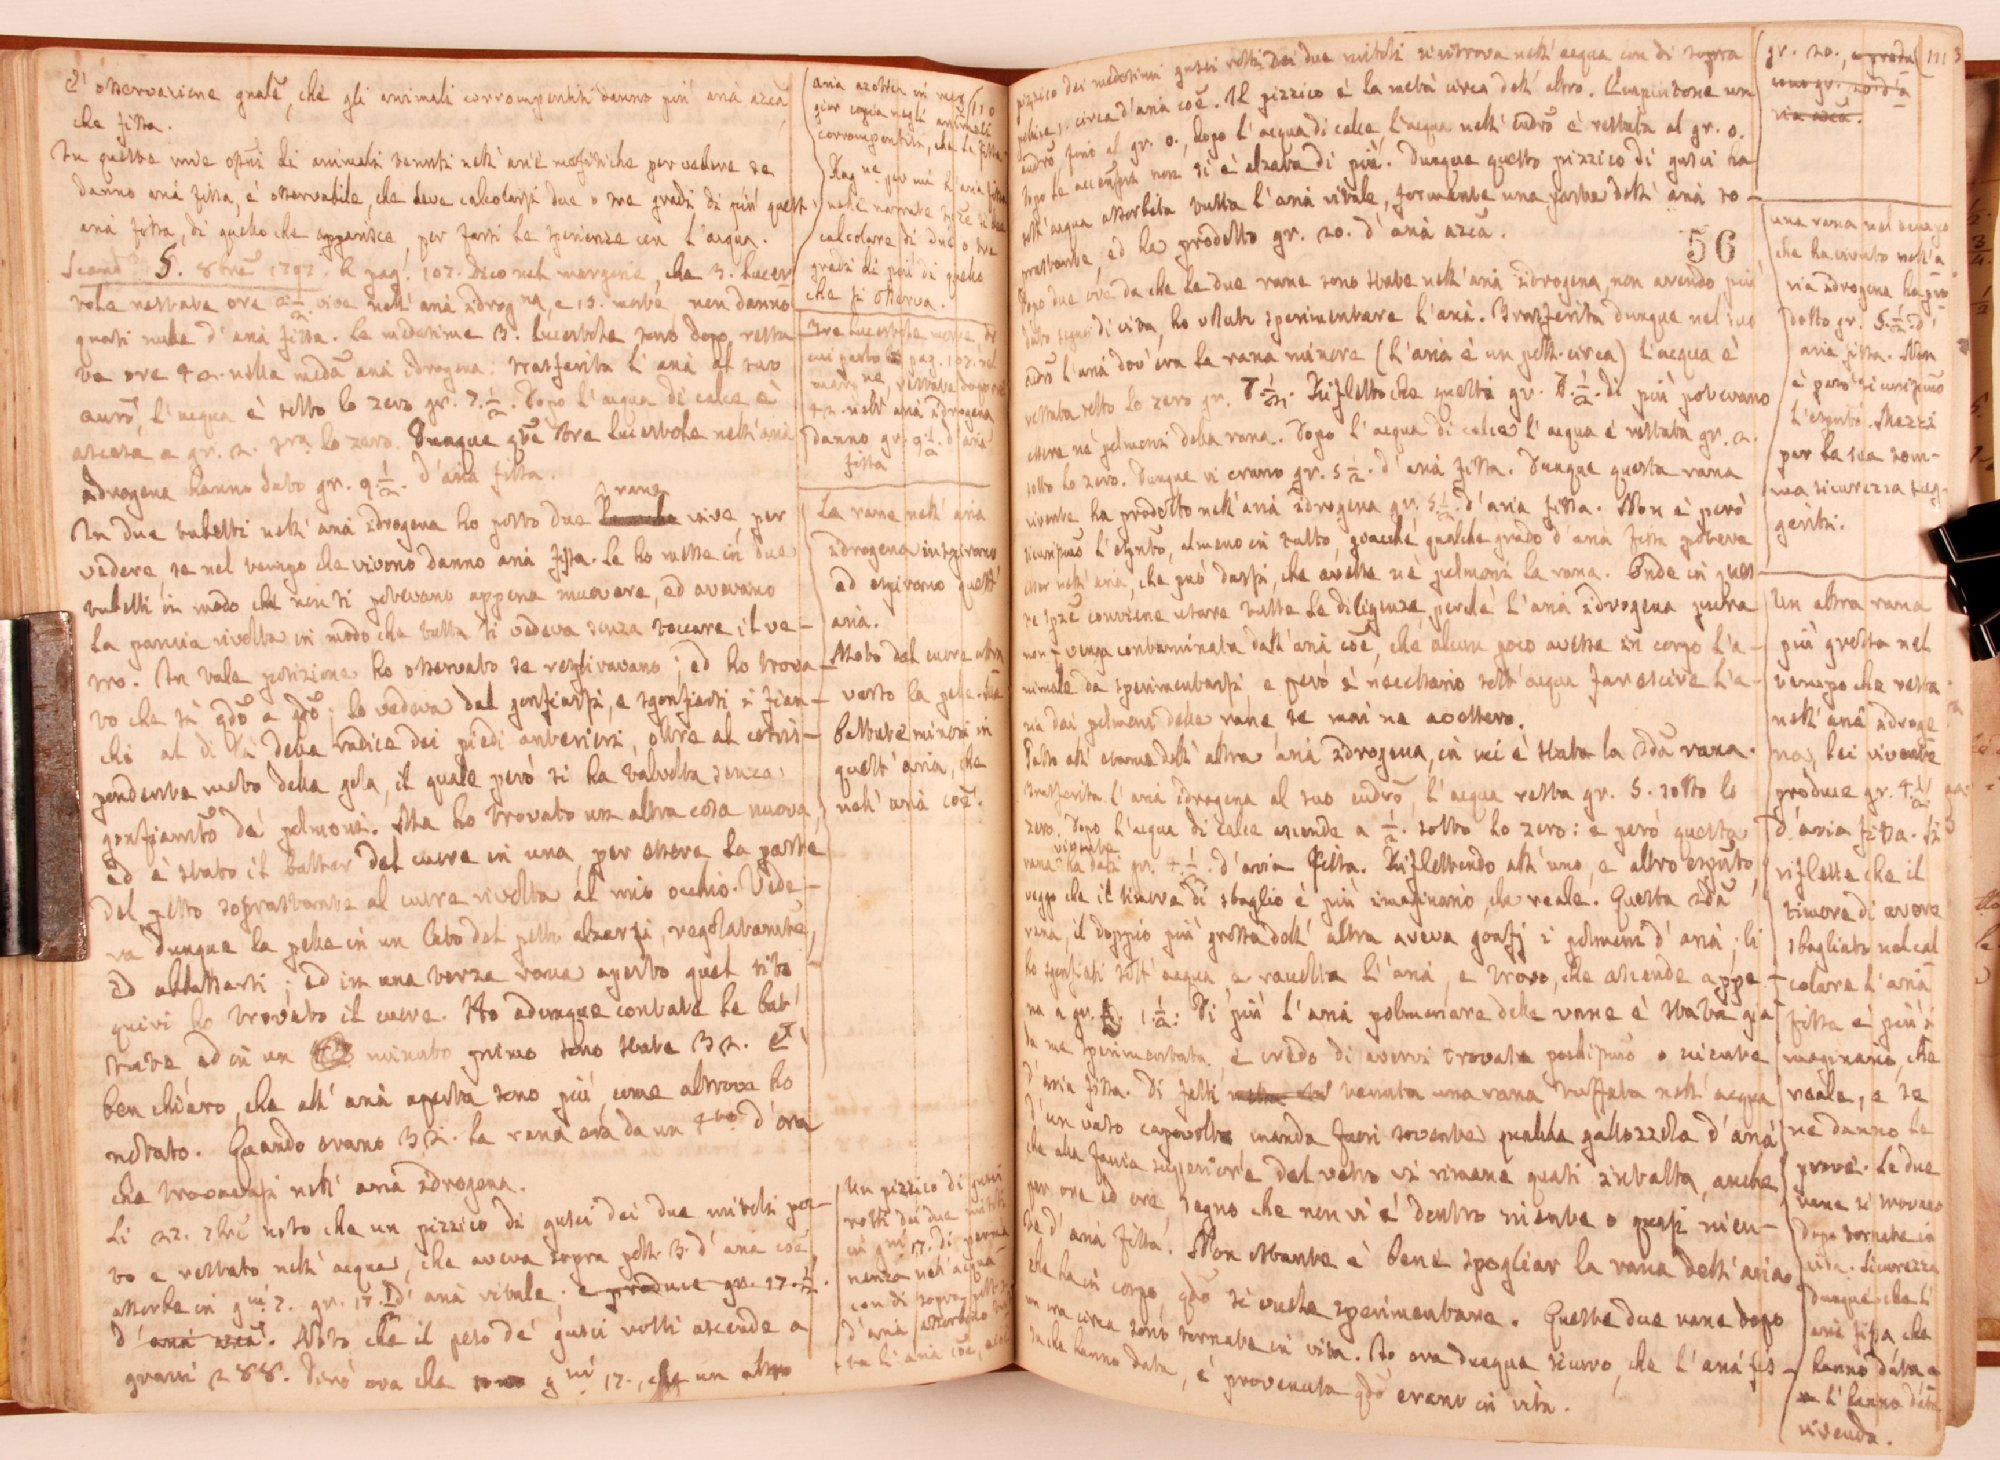 È osservazione gnale, che gli animali corrompentisi danno più aria azca,
che fissa.
In queste mie spni di animali tenuti nell' arie mofitiche per vedere se
danno aria fissa, è osservabile, che deve calcolarsi due o tre gradi di più quest'
aria fissa, di quello che apparisce, per farsi le sperienze con l'acqua.
5. 8bre 1797. A pag. 107. dico nel margine, che 3. lucer
tole restate ore 2 1/2 vive nell' aria idrogna, e 15. morte non danno
quasi nulla d' aria fissa. Le medesime 3. lucertole sono dopo resta
te ore 42. nella meda aria idrogena: trasferita l' aria al suo
eudro, l'acqua è sotto lo zero gr. 7. 1/2. Dopo l'acqua di calce è
ascesa a gr. 2. pra lo zero. Dunque qste tre lucertole nell' aria
idrogena hanno dato gr. 9 1/2. d' aria fissa.
rane
In due tubetti nell' aria idrogena ho posto due vive, per
vedere, se nel tempo che vivono danno aria fissa. Le ho messe in due
tubetti in modo che non si potevano appena muovere, ed avevano
la pancia rivolta in modo che tutta si vedeva senza toccare il ve-
tro. In tale posizione ho osservato se respiravano; ed ho trova-
to che sì qdo a qdo; lo vedeva dal gonfiarsi, e sgonfiarsi i fian-
chi al di là della radice dei piedi anteriori, oltre al corris-
pondente moto della gola, il quale però si ha talvolta senza
gonfiamto de' polmoni. Ma ho trovato un altra cosa nuova,
ed è stato il batter del cuore in una, per essere la parte
del petto soprastante al cuore rivolta al mio occhio. Vede-
va dunque la pelle in un lato del petto alzarsi, regolatamte,
ed abbassarsi; ed in una terza rana aperto quel sito
quivi ho trovato il cuore. Ho adunque contate le bat
tute ed in un minuto primo sono state 32. È
ben chiaro, che all' aria aperta sono più, come altrove ho
notato. Quando erano 32. la rana era da un 4to d' ora
che trovavasi nell' aria idrogena.
Li 22. 7bre noto che un pizzico di gusci dei due mitoli pe-
to e restato nell' acqua, che aveva sopra poll. 3. d' aria coe
assorbe in gni 7. gr. 17. d' aria vitale, e produce gr. 17. 1/2.
d' aria azca. Noto che il peso de' gusci rotti ascende a
grani 288. Dirò ora che gni 17., che un altro
aria azotica in mag 110
gior copia negli animali
corrompentisi, che la fissa.
Ragne per cui l'aria fissa
nelle narrate spze si dee
calcolare di due o tre
gradi di più di quello
che si osserva.
Tre lucertole morte, di
cui parlo a pag. 107. nel
margne, restate dopo ore
42. nell' aria idrogena
danno gr. 9 1/2. d' aria
fissa
Le rane nell' aria
idrogena inspirano
ed espirano quest'
aria.
Moto del cuore attra
verso la pelle. Sue
battute minori in
quest' aria, che
nell' aria coe.
Un pizzico di gusci
rotti dei due mitoli
in gni 17. di perma
nenza nell' acqua
con di sopra poll. 3.
d' aria assorbono tut
ta l' aria coe,
pizzico dei medesimi gusci rotti dei due mitoli si ritrova nell' acqua con di sopra
pollice 1. circa d' aria coe. Il pizzico è la metà circa dell' altro. L'aspirazione un
eudro fino al gr. 0., dopo l' acqua di calce l'acqua nell' eudro è restata al gr. 0.
dopo le accensni non si è alzata di più. Dunque questo pizzico di gusci ha
sott' acqua assorbita tutta l' aria vitale, formante una parte dell' aria so-
prastante, ed ha prodotto gr. 20. d' aria azca.
56
Dopo due ore da che le due rane sono state nell' aria idrogena, non avendo più
dato segni di vita, ho voluto sperimentare l' aria. Trasferita dunque nel suo
eudro l'aria dov' era la rana minore (l' aria è un poll. circa) l'acqua è
restata sotto lo zero gr. 7. 1/2. Rifletto che questi gr. 7. 1/2. di più potevano
essere ne' polmoni della rana. Dopo l' acqua di calce l' acqua è restata gr. 2.
sotto lo zero. Dunque vi erano gr. 5 1/2. d' aria fissa. Dunque questa rana
vivente ha prodotto nell' aria idrogena gr. 5 1/2. d' aria fissa. Non è però
sicurismo l' espmto, almeno in tutto, giacchè qualche grado d' aria fissa poteva
esser nell' aria, che può darsi che avesse ne' polmoni la rana. Onde in ques
te spze conviene usare tutte le diligenze, perchè l' aria idrogena pura
non venga contaminata dall' aria coe, che alcun poco avesse in corpo l'a-
nimale da sperimentarsi, e però è necessario sott' acqua far escire l' a-
ria dai polmoni delle rane se mai ne avessero.
Passo all' esame dell' altra aria idrogena, in cui è stata la 2da rana.
Trasferita l' aria idrogena al suo eudro, l' acqua resta gr. 5. sotto lo
zero. Dopo l' acqua di calce ascende a 1/2. sotto lo zero: e però questa
vivente
rana ha dati gr. 4 1/2. d' aria fissa. Riflettendo all' uno, e altro espmto,
veggo che il timore di sbaglio è più imaginario, che reale. Questa 2da
rana, il doppio più grossa dell' altra aveva gonfj i polmoni d' aria; li
ho sgonfiati sott' acqua, e raccolta l' aria, e trovo, che ascende appe-
na a gr. 1 1/2: Di più l' aria polmonare delle rane è stata già
da me sperimentata, e credo di avervi trovata pochismo o niente
d' aria fissa. Di fatti tenuta una rana tuffata nell' acqua
d' un vaso capovolto manda fuori sovente qualche gallozzola d' aria
che alla faccia superiore del vetro vi rimane quasi intatta, anche
per ore ed ore, segno che non vi è dentro niente o quasi nien-
te d' aria fissa. Non ostante è bene spogliar la rana dell' aria
che ha in corpo, qdo si vuole sperimentare. Queste due rane dopo
un ora circa sono tornate in vita. Io ora dunque sicuro, che l' aria fis-
sa che hanno data, è provenuta qdo erano in vita.
gr. 20., e produ 111
cono gr. 20. d'a
ria azca.
una rana nel tempo
che ha vivuto nell'a
ria idrogena ha pro
dotto gr. 5. 1/2. d'
aria fissa. Non
è però sicurismo
l'espmto. Mezzi
per la sua som-
ma sicurezza sug
geriti.
Un altra rana
più grossa nel
tempo che resta
nell' aria idroge
na, lei vivente
produce gr. 4 1/2
d' aria fissa. Si
riflette che il
timore di avere
sbagliato nel cal
colare l' aria
fissa è più i
maginario, che
reale, e se
ne danno le
prove. Le due
rane si trovano
dopo tornate in
vita. Sicurezza
dunque che l'
aria fissa che
hanno data
l' hanno data
vivendo.